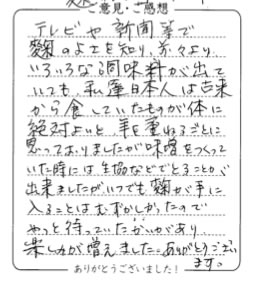 意見・ご感想
テレビや新聞等で
麹のよさを知り、前々より、
いろいろな調味料が出て
いても、私達日本人は古来
から食していたものが体に
絶対よいと、年を重ねるごとに
思っておりましたが味噌をつくって
いた時には生協などでとることが
出来ましたがいつでも麹が手に
入ることはむずかしかったので
やっと待っていたかいがあり
楽しみが増えました。ありがとうござい
ます。
ありがとうございました!